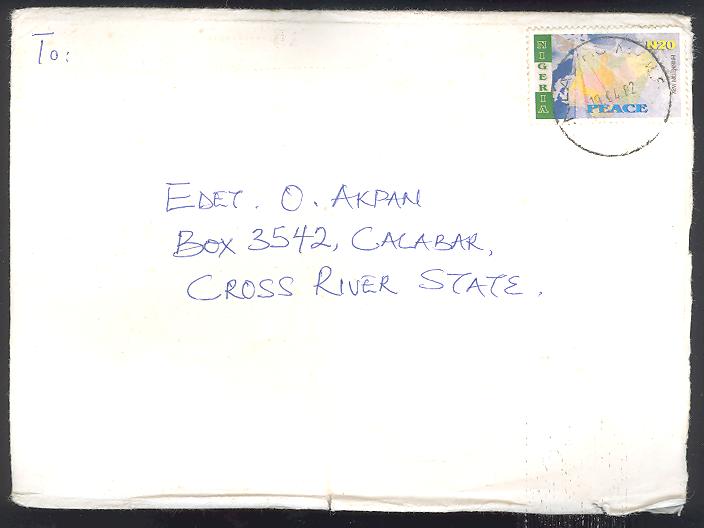 To:
NIGERIA
N20
New Millennium
PEACE
EDET. O. AKPAN
BOX 3542, CALABAR,
CROSS RIVER STATE.